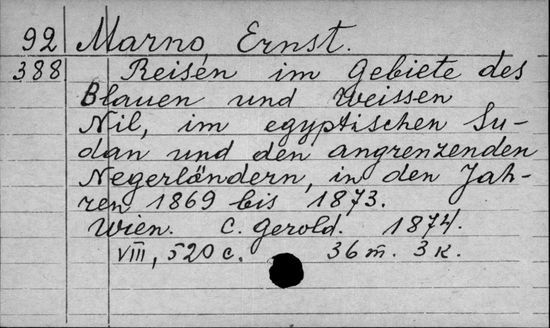 92 Marno, Ernst.
388 Reisen im Gebiete des
Blauen und Weissen
Nil, im egyptischen Su-
dan und den angrenzenden
Negerländern, in den Jah-
ren 1869 bis 1873.
Wien. C. Gerold. 1874.
VIII, 520 c. 36 т. 3 к.